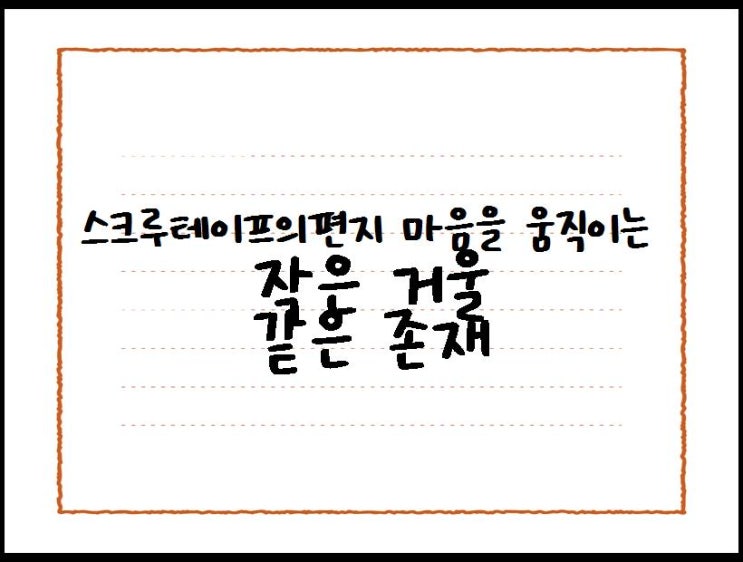 스크루테이프의편지 마음을 움직이는
작은 거울
같은 존재